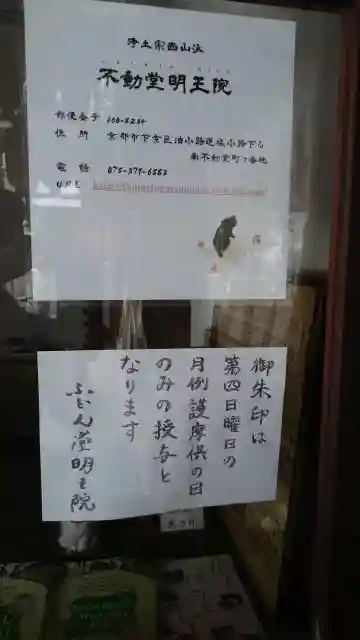 浄土宗西山派
不動堂明王院
郵便番号 600-8234
住所 京都市下京区油小路通塩小路下る
南不動堂町7番地
電話 075-371-6553
URL
御朱印は
第四日曜日の
月例護摩供の日
のみの授与と
なります
ふどん堂明王院